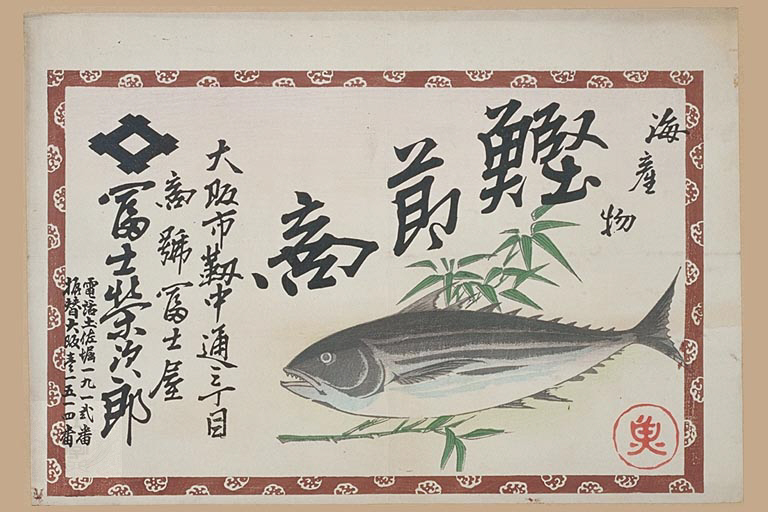 海産物
鰹節商
大阪市靱中通三丁目
商號冨士屋
冨士榮次郎
電話土佐堀一九一弐番
振替大阪壱一五一四番